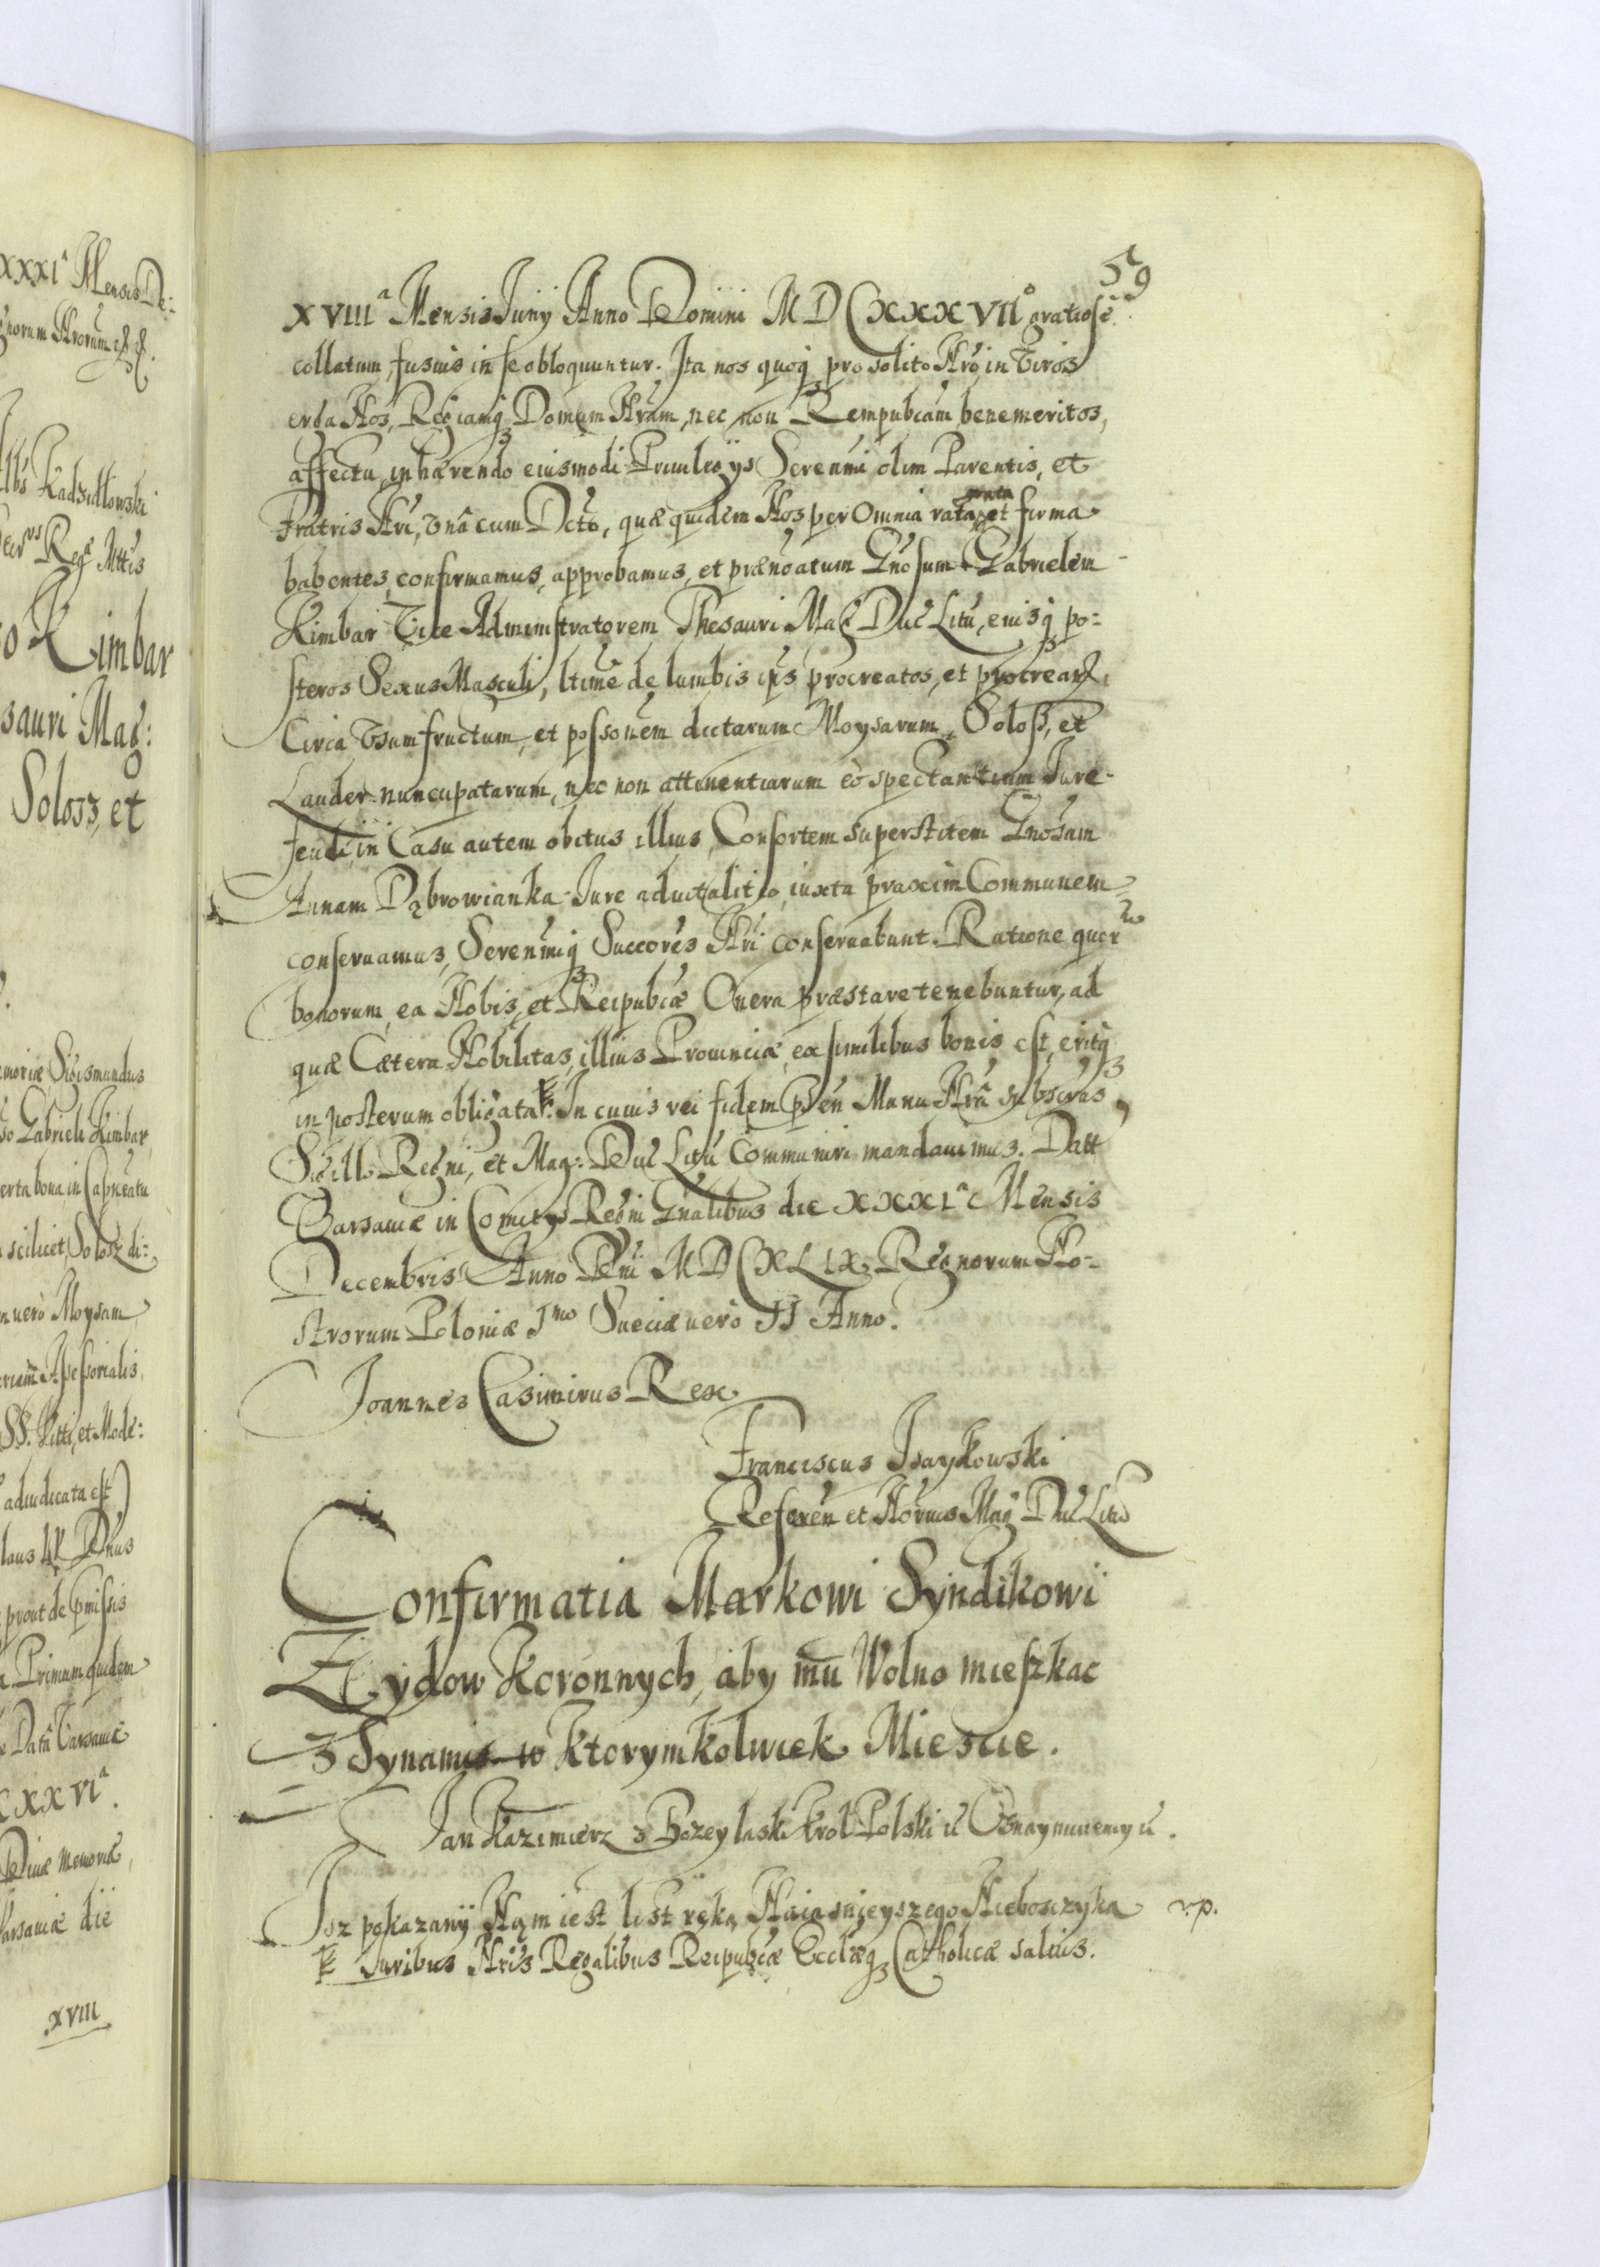 XXXIª Mensis De:
norum Nrorum etc.
Kadzidłowski
Regæ Mttis
o Kimbar
sauri Mag:
Solosz, et
moriæ Sigismundus
so Gabrieli Kimbar
erta bona in Capneatu
scilicet, Solosz di:
n vero Moysam
Assessorialis
SS. Vitti, et Mode:
adiudicata est)
Dnus
prout de pmissis
Primum quidem
Data Varsaviæ
CXXVIª.
Divæ memoriæ,
Varsaviæ die
xviii
59
XVIIIª Mensis Junij Anno Domini MDCXXXVIIº gratiosè
collatum, fusius in se obloquuntur. Ita nos quoq3 pro solito Nro in Viros
erga Nos, Regiamq3 Domum Nram, nec non Rempubcam benemeritos,
affectu, inhærendo eiusmodi Privilegijs Serenmi olim Parentis, et
Fratris Nri, vnâ cum Dcto, quæ quidem Nos per Omnia rata, grata et firma
habentes, confirmamus, approbamus, et prænoatum Gnosum Gabrielem
Kimbar Vice Administratorem Thesauri Mag Duc Litu, eiusq3 po:
steros Sexus Masculi, ltime de lumbis ips procreatos, et procreand.
Circa Vsumfructum, et possonem dictarum Moysarum, Solosz, et
Lauder nuncupatarum, nec non attinentiarum eò spectantium Jure
feudi, in Casu autem obitus illius, Consortem superstitem Gnosam
Annam Dąbrowianka Jure aduitalitio, iuxta praxim Communem
conseruamus, Serenmiq3 Succores Nri conseruabunt. Ratione quor
bonorum, ea Nobis, et Reipubcæ Onera præstare tenebuntur, ad
quæ Cætera Nobilitas, illius Prouinciæ, ex similibus bonis est, eritq3
in posterum obligata. In cuius rei fidem pnten Manu Nrâ subscras,
Sigill. Regni, et Mag: Duc Litu Communiri mandauimus. Datt
Varsauiæ in Comitijs Regni Gnalibus die XXXIª Mensis
Decembris Anno Dni MDCXLIX. Regnorum No-
strorum Poloniæ Imo Sueciæ uerò II Anno.
Joannes Casimirus Rex
Franciscus Isaykowski
Referen et Norius Mag Duc Litu
Confirmatia Markowi Syndikowi
Zydow Koronnych, aby mu Wolno mieszkac
z Synami w ktorymkolwiek Miescie.
Jan Kazimierz z Bozey łaski krol Polski ii Oznaymuiemy ii.
Isz pokazany Nam iest list ręką Naiasnieyszego Nieboszczyka v.p.
Juribus Nris Regalibus Reipubcæ Ecclæq3 Catholicæ saluis.